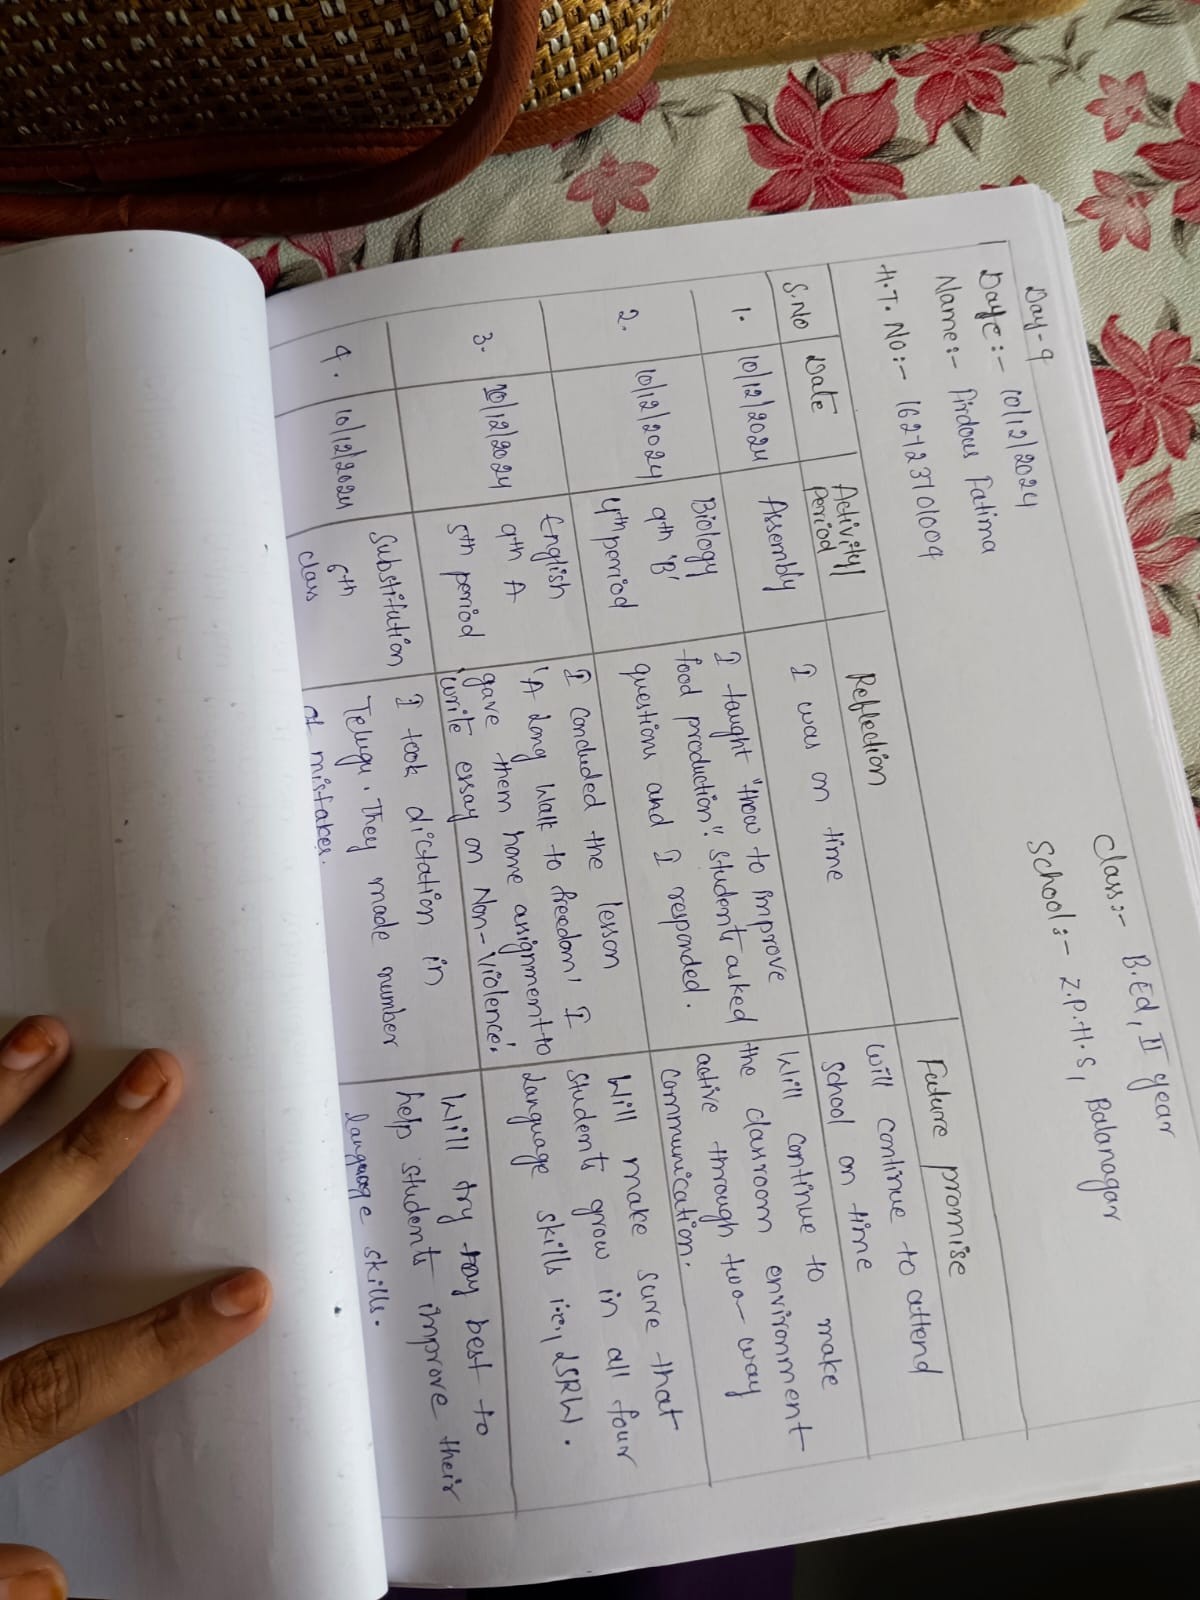 Day-9
Date:- 10/12/2024
Class:- B.Ed, II year
Name:- Firdous Fatima
School:- Z.P.H.S, Balanagar
H.T. No:-
S.No Date Activity/ Reflection Future promise
period
1. 10/12/2024 Assembly I was on time will continue to attend
school on time
2. 10/12/2024 Biology I taught "How to improve Will continue to make
9th 'B' food production". Students asked the classroom environment
4th period questions and I responded. active through two-way
communication.
3. 10/12/2024 English I concluded the lesson Will make sure that
9th A 'A Long Walk to freedom, I students grow in all four
5th period gave them home assignment to language skills i.e, LSRW.
'write essay on Non-Violence'.
4. 10/12/2024 Substitution I took dictation in Will try my best to
6th Telugu. They made number help students improve their
class of mistakes. language skills.